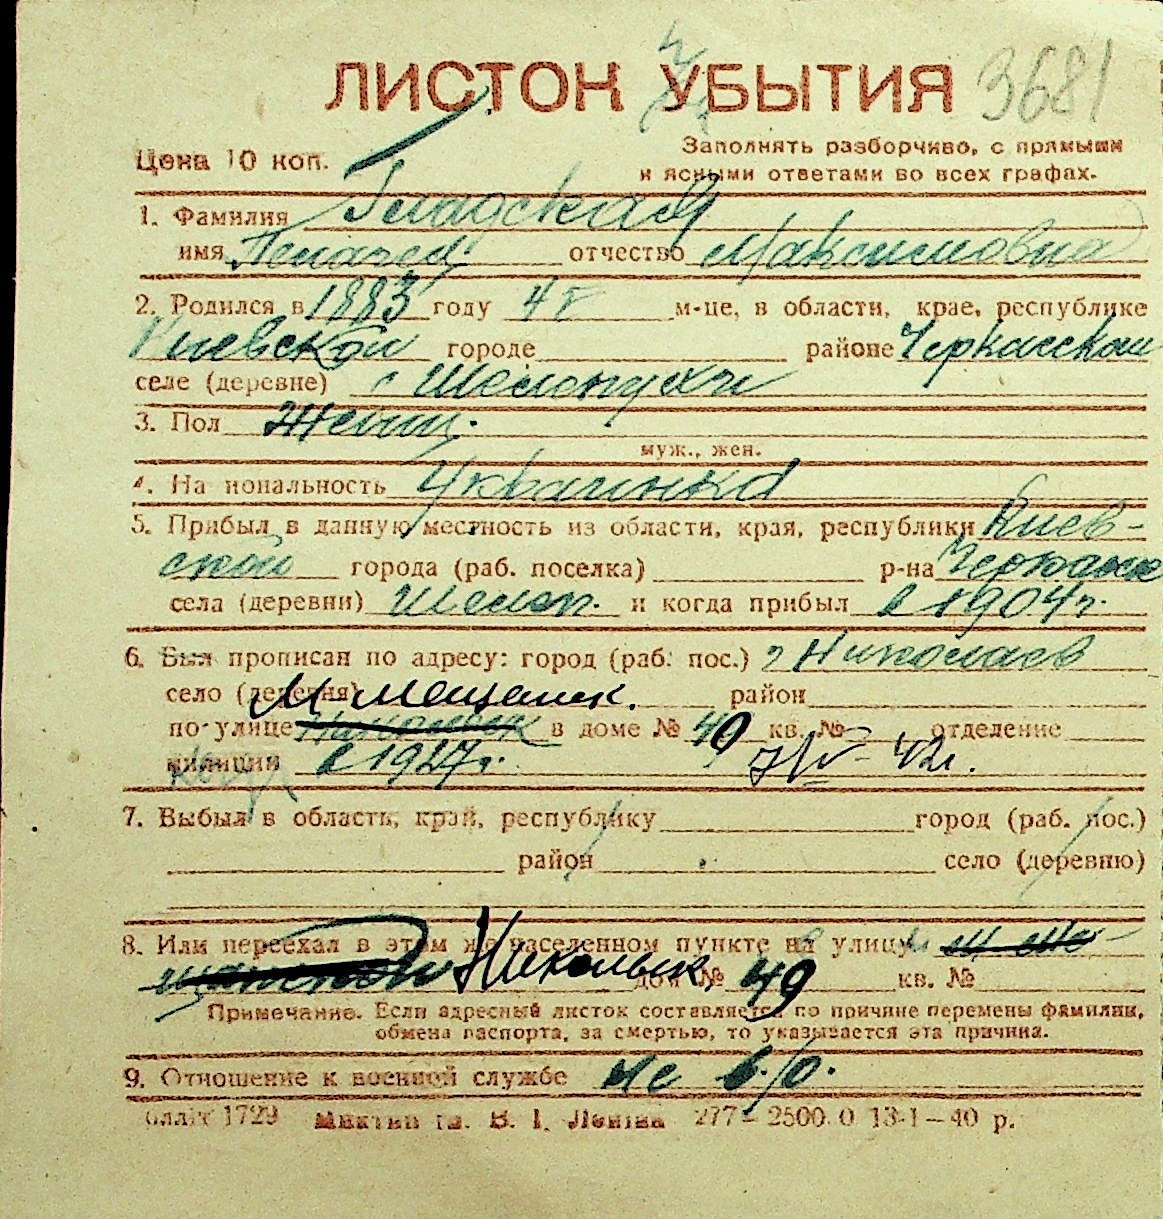 ЛИСТОК УБЫТИЯ 3681
Цена 10 коп. Заполнять разборчиво, с прямыми
и ясными ответами во всех графах.
1. Фамилия Гладская
имя Пелагея отчество Максимовна
2. Родился в 1883 году 4 м-це, в области, крае, республике
Киевской городе районе Черкасском
селе (деревне) с Шелепухи
3. Пол женщ.
муж., жен.
4. На иональность Украинка
5. Прибыл в данную местность из области, края, республики Киев-
ской города (раб. поселка) р-на Черкасск
села (деревни) Шелеп. и когда прибыл в 1904 г.
6. Был прописан по адресу: город (раб. пос.) г Николаев
село (деревня) М-Мещанск. район
по улице в доме № 40 кв. № отделение
милиции в 1927 г. 7/IV-42 г.
7. Выбыл в область, край, республику город (раб. пос.)
район село (деревню)
8. Или переехал в этом же населенном пункте на улицу
Никольск. дом № 49 кв. №
Примечание. Если адресный листок составляется по причине перемены фамилии,
обмена паспорта, за смертью, то указывается эта причина.
9. Отношение к военной службе не в/о.
1729 В. І. Леніна 277 – 2500.0 13-1–40 р.